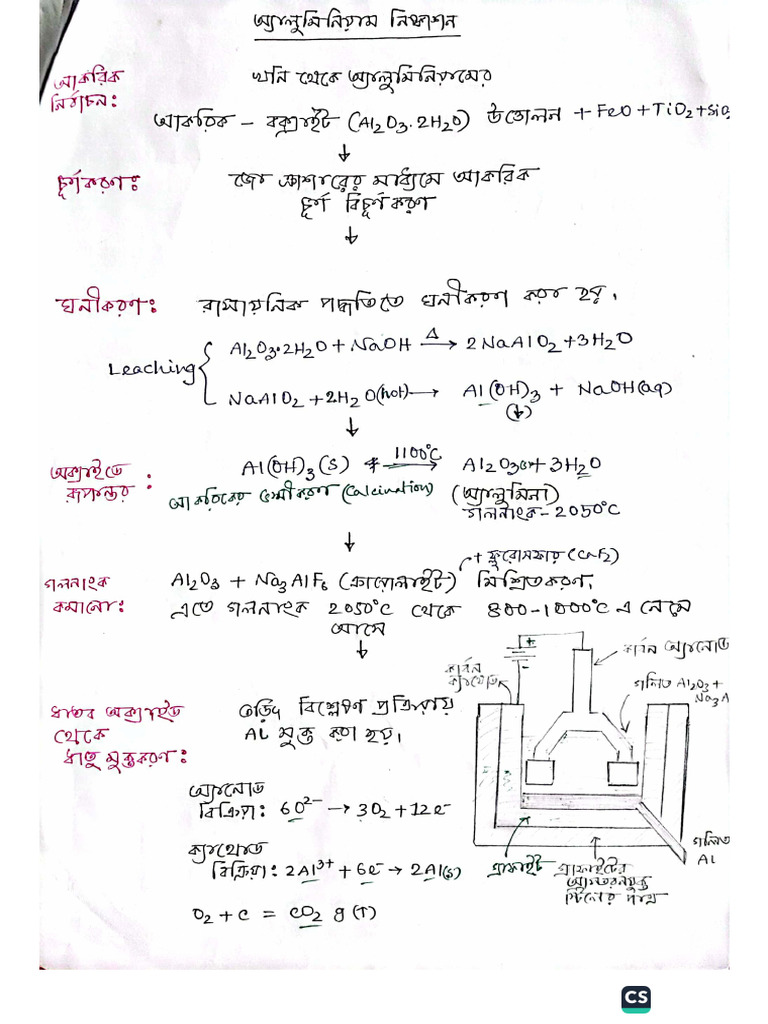 অ্যালুমিনিয়াম নিষ্কাশন
আকরিক
নির্বাচন:
খনি থেকে অ্যালুমিনিয়ামের
আকরিক – বক্সাইট (Al₂O₃·2H₂O) উত্তোলন + FeO + TiO₂ + SiO₂
↓
চূর্ণকরণ:
জো ক্রাশারের মাধ্যমে আকরিক
চূর্ণ বিচূর্ণকরণ
↓
ঘনীকরণ: রাসায়নিক পদ্ধতিতে ঘনীকরণ করা হয়।
Leaching
Al₂O₃·2H₂O + NaOH –Δ→ 2NaAlO₂ + 3H₂O
NaAlO₂ + 2H₂O(hot) → Al(OH)₃ + NaOH(aq)
(↓)
↓
অক্সাইডে
রূপান্তর:
Al(OH)₃(s) 1100°C → Al₂O₃ + 3H₂O
আকরিকের ভস্মীকরণ (Calcination)
(অ্যালুমিনা)
গলনাংক – 2050°C
↓
+ ফ্লুরোস্পার (CaF₂)
গলনাংক
কমানো:
Al₂O₃ + Na₃AlF₆ (ক্রায়োলাইট) মিশ্রিতকরণ,
এতে গলনাংক 2050°C থেকে 800–1000°C এ নেমে
আসে
↓
ধাতব অক্সাইড
থেকে
ধাতু মুক্তকরণ:
তড়িৎ বিশ্লেষণ প্রক্রিয়ায়
Al মুক্ত করা হয়।
অ্যানোড
বিক্রিয়া: 6O²⁻ → 3O₂ + 12e⁻
ক্যাথোড
বিক্রিয়া: 2Al³⁺ + 6e⁻ → 2Al(s)
O₂ + C = CO₂ g (↑)
+
-
কার্বন
ক্যাথোড
কার্বন অ্যানোড
গলিত Al₂O₃ +
Na₃A
গলিত
Al
গ্রাফাইট
গ্রাফাইটের
আস্তরনযুক্ত
স্টিলের পাত্র
CS